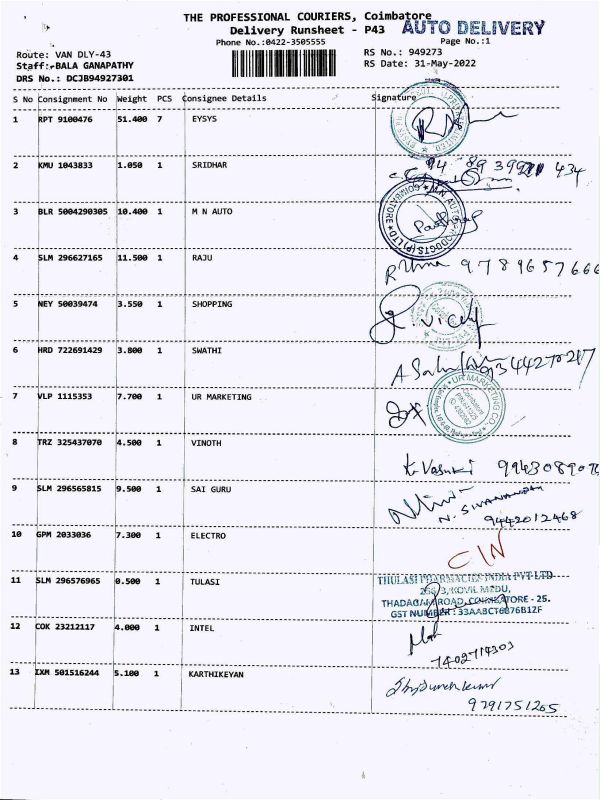 THE PROFESSIONAL COURIERS, Coimbatore
AUTO DELIVERY
Delivery Runsheet - P43
Phone No.:0422-3505555
Page No.:1
Route: VAN DLY-43
RS No.: 949273
Staff:-BALA GANAPATHY
RS Date: 31-May-2022
DRS No.: DCJB94927301
S No Consignment No Weight PCS Consignee Details Signature
1 RPT 9100476 51.400 7 EYSYS
2 KMU 1043833 1.050 1 SRIDHAR
3 BLR 5004290305 10.400 1 M N AUTO
COIMBATORE
4 SLM 296627165 11.500 1 RAJU
9789657666
5 NEY 50039474 3.550 1 SHOPPING
6 HRD 722691429 3.800 1 SWATHI
7 VLP 1115353 7.700 1 UR MARKETING
UR MARKETING CO.
8 TRZ 325437070 4.500 1 VINOTH
K. Vasuki
9 SLM 296565815 9.500 1 SAI GURU
N. SIVANANDAM
9442012468
10 GPM 2033036 7.300 1 ELECTRO
11 SLM 296576965 0.500 1 TULASI
THULASI PHARMACIES INDIA PVT LTD
KOVIL MEDU,
THADAGAM ROAD, COIMBATORE - 25.
GST NUMBER : 33AABCT6876B12F
12 COK 23212117 4.000 1 INTEL
7402714303
13 IXM 501516244 5.100 1 KARTHIKEYAN
9791751265